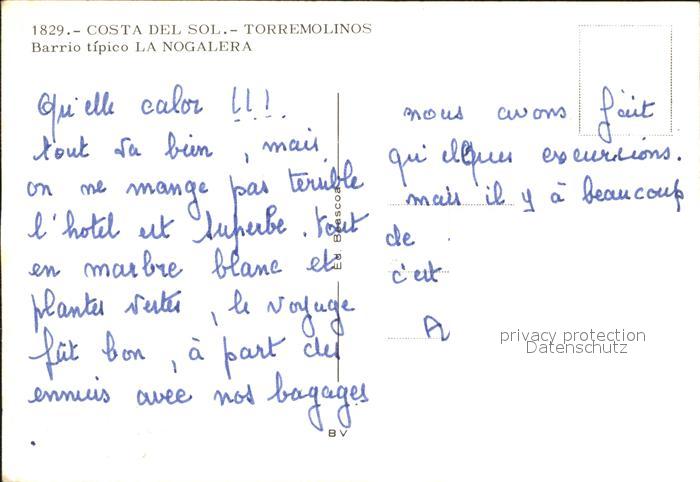 1829.- COSTA DEL SOL.- TORREMOLINOS
Barrio típico LA NOGALERA
Qu'elle calor !!!
tout va bien, mais
on ne mange pas terrible
l'hotel est superbe. tout
en marbre blanc et
plantes vertes, le voyage
fût bon, à part des
ennuis avec nos bagages
.
Ed. Beascoa
BV
nous avons fait
qu'elques excursions.
mais il y à beaucoup
de
c'est
A
privacy protection
Datenschutz